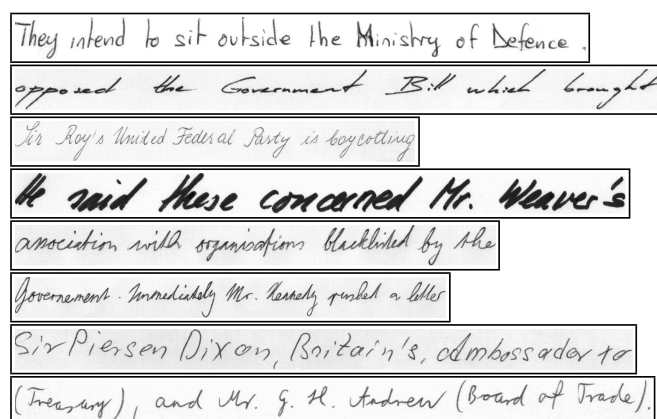 They intend to sit outside the Ministry of Defence.
opposed the Government Bill which brought
Sir Roy's United Federal Party is boycotting
He said these concerned Mr. Weaver's
association with organisations blacklisted by the
Governement. Immediately Mr. Kennedy rushed a letter
Sir Piersen Dixon, Britain's, Ambossador to
(Treasury), and Mr. G. H. Andrew (Board of Trade).